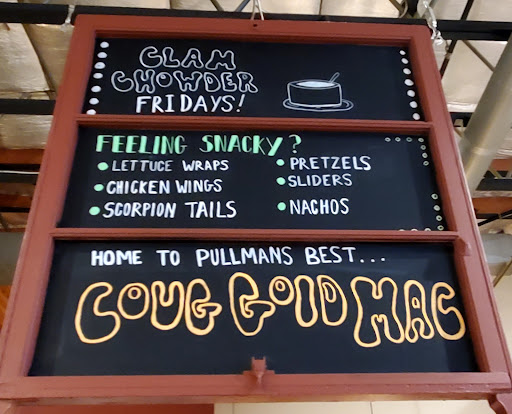 CLAM
CHOWDER
FRIDAYS!
FEELING SNACKY?
• LETTUCE WRAPS
• PRETZELS
• CHICKEN WINGS
• SLIDERS
• SCORPION TAILS
• NACHOS
HOME TO PULLMANS BEST...
COUG GOLD MAC